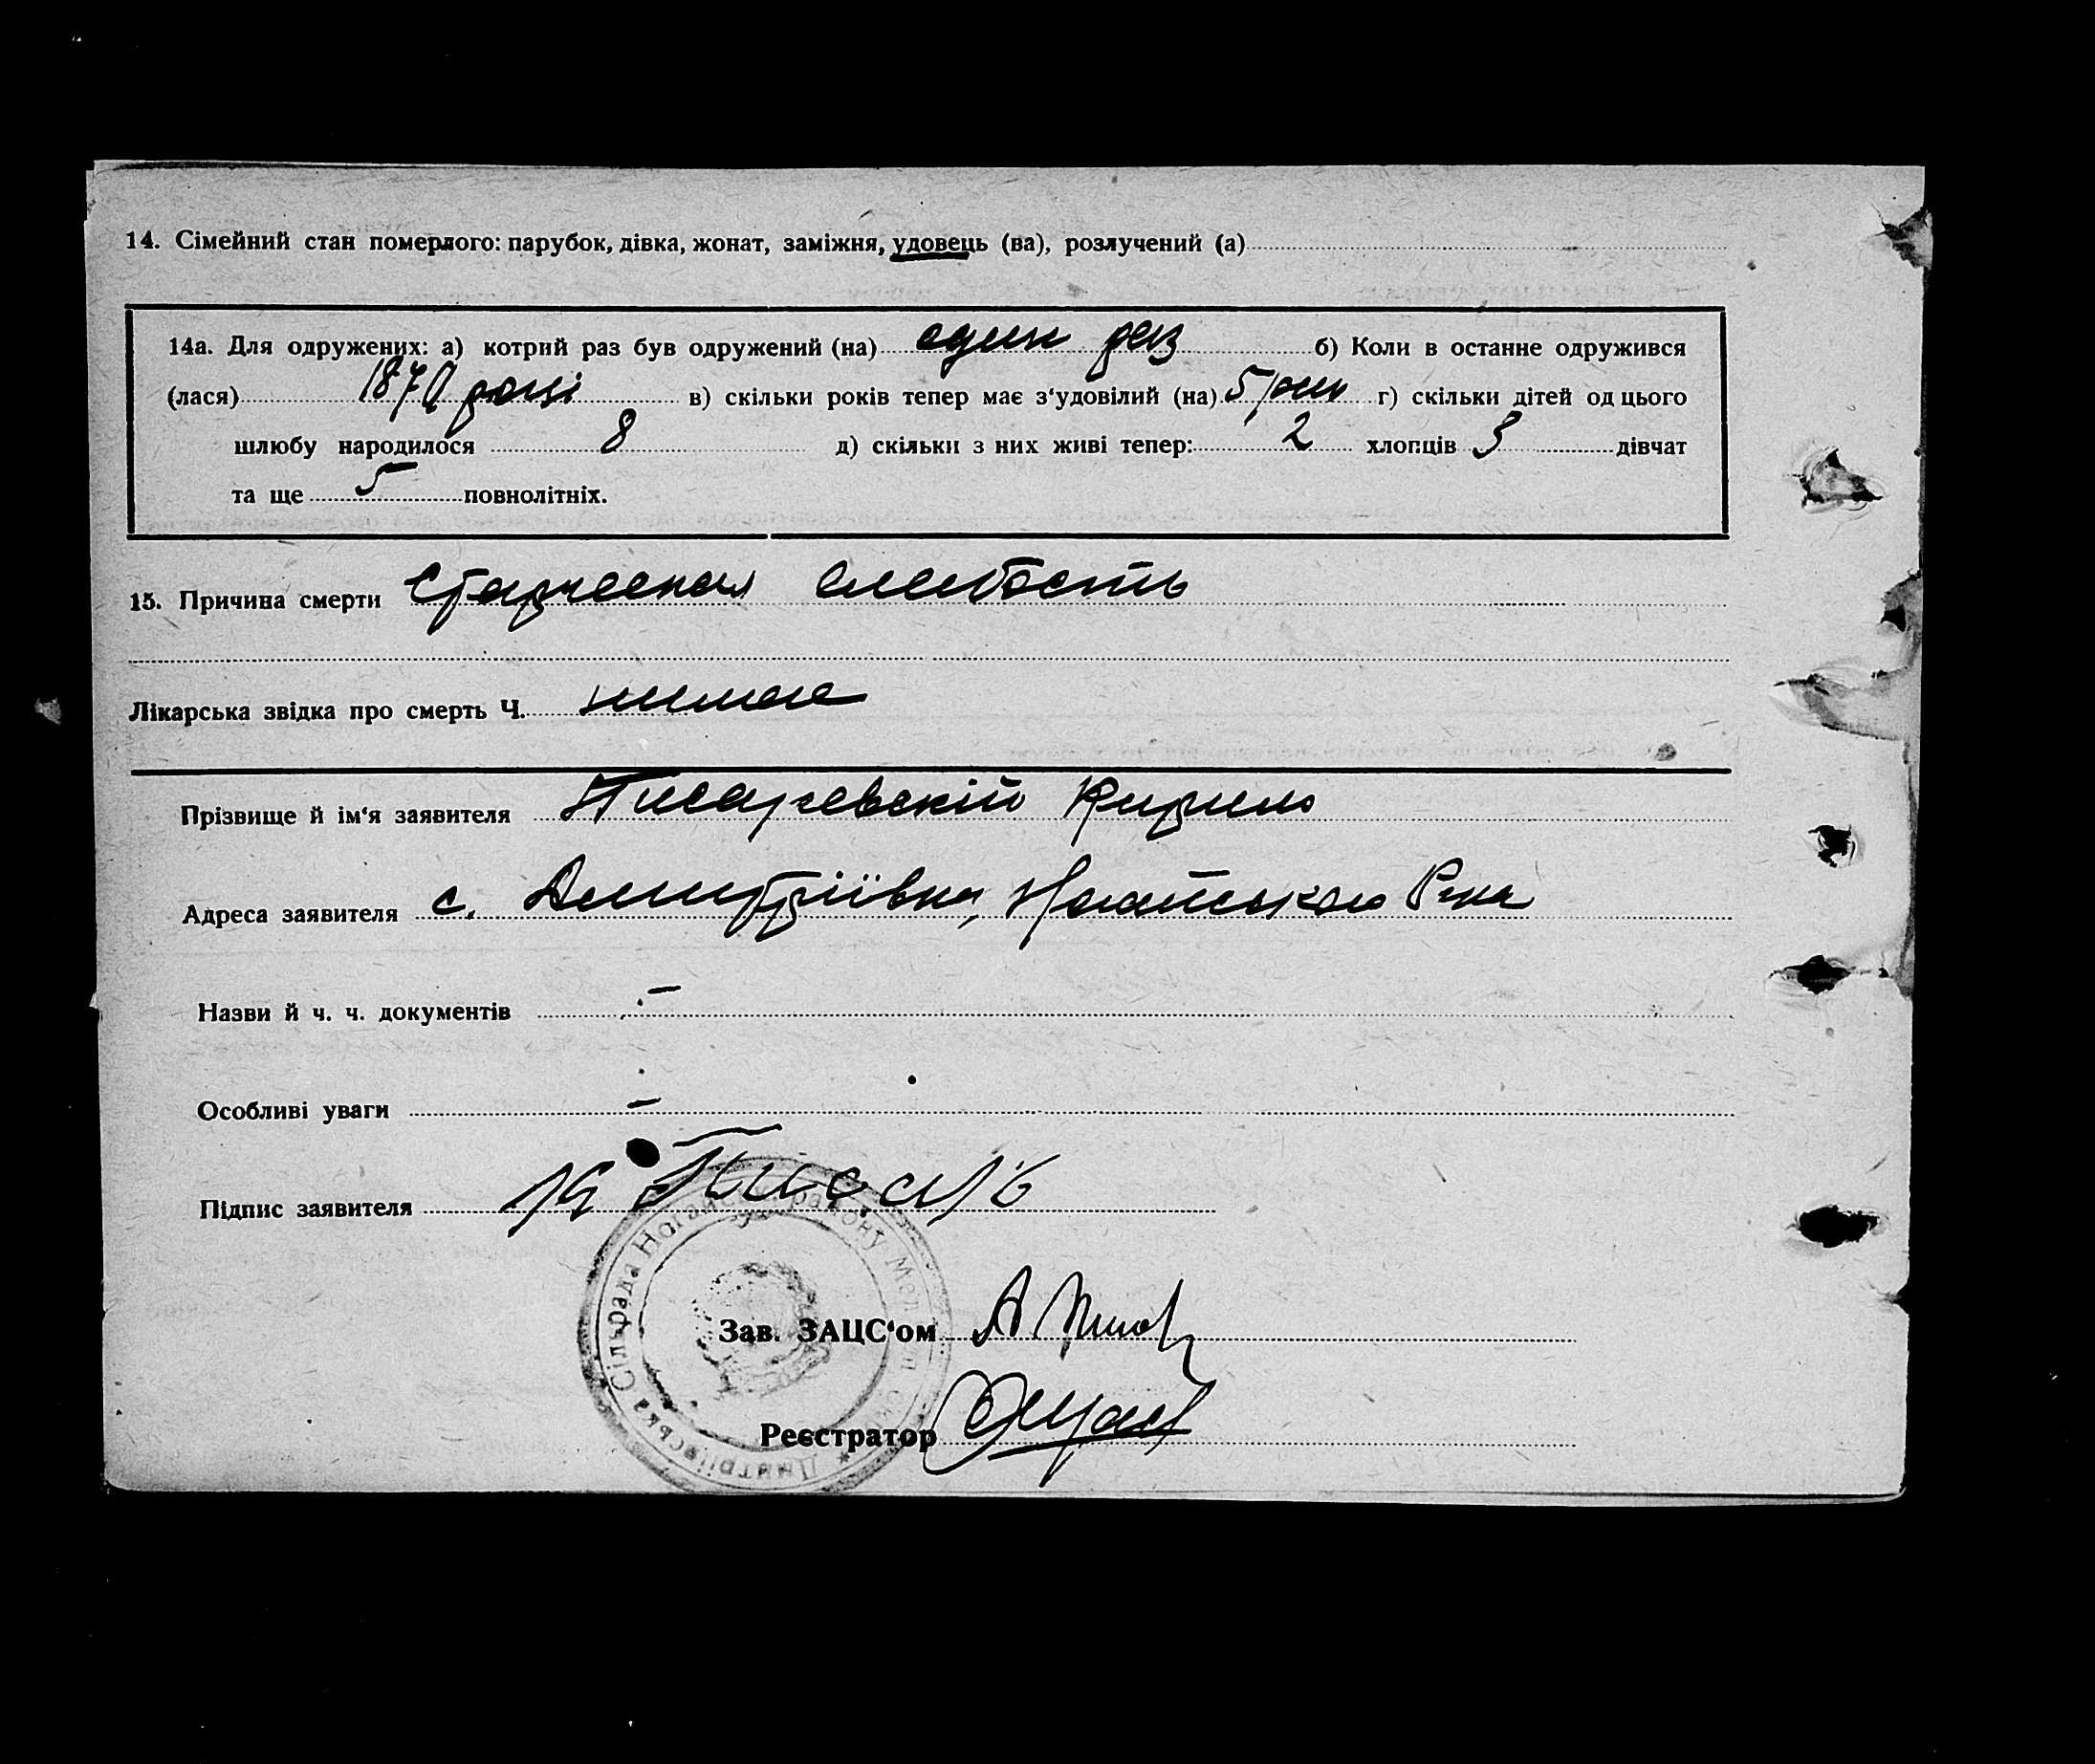 14. Сімейний стан померлого: парубок, дівка, жонат, заміжня, удовець (ва), розлучений (а)
14а. Для одружених: а) котрий раз був одружений (на) один раз б) Коли в останне одружився
(лася) 1870 році в) скільки років тепер має з‘удовілий (на) 5 г) скільки дітей од цього
шлюбу народилося 8 д) скільки з них живі тепер: 2 хлопців 3 дівчат
та ще 5 повнолітніх.
15. Причина смерти Старческая слабость
Лікарська звідка про смерть Ч. нимае
Прізвище й ім‘я заявителя Писаревскій Кирило
Адреса заявителя с. Дмитріївка, Ногайського Р-на
Назви й ч. ч. документів –
Особливі уваги –
Підпис заявителя К Писар
Дмитріївська Сільрада Ногайськ. району
Зав. ЗАЦС‘ом
Реєстратор